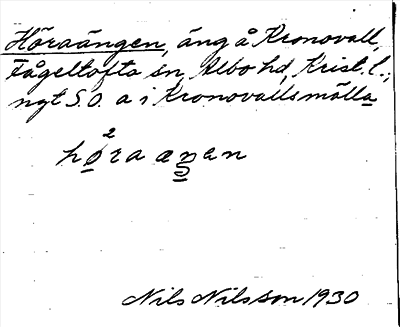 Höraängen, äng å Kronovall,
Fågeltofta sn, Albo hd, Krist. l.;
ngt S.O. a i Kronovallsmölla
hø²ra æŋen
Nils Nilsson 1930